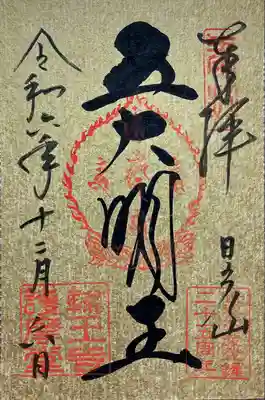 奉拝
日光山
五大明王
令和六年十二月六日
輪王寺
護摩堂